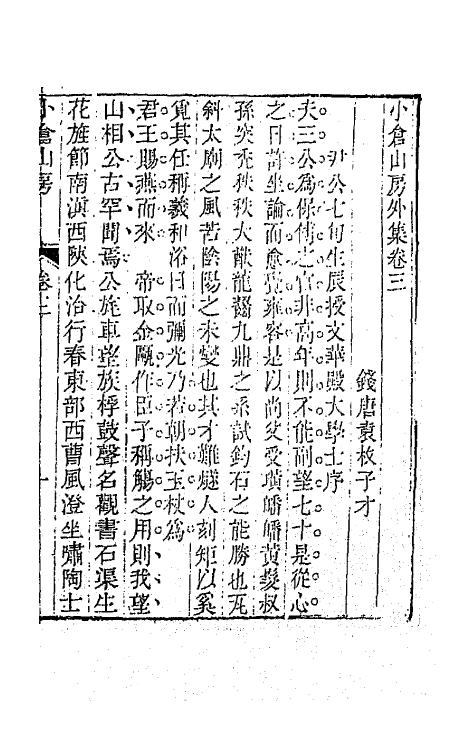 小倉山房外集卷三
錢唐袁枚子才
尹公七旬生辰授文華殿大學士序
夫三公爲保傅之官非高年則不能副望七十是從心
之日許坐論而愈覺雍容是以尚父受璜皤皤黃髮叔
孫突充秩秩大猷龍醫九鼎之系試鈞石之能勝也瓦
斜太廟之風苦陰陽之未變也其才難燧人刻矩以奚
覓其任稱羲和浴日而彌光乃若朝扶玉杖爲
君王賜燕而來 帝取金甌作臣子稱觴之用則我望
山相公古罕聞焉公旄車望族桴鼓聲名觀書石渠生
花旌節南滇西陝化治行春東部西曹風澄坐嘯陶士
小倉山房
卷三
一